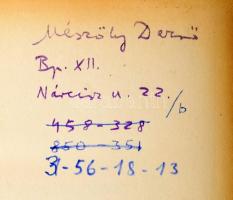 Mészöly Dezső
Bp. XII.
Nárcisz u. 22./b
458-328
850-351
31-56-18-13